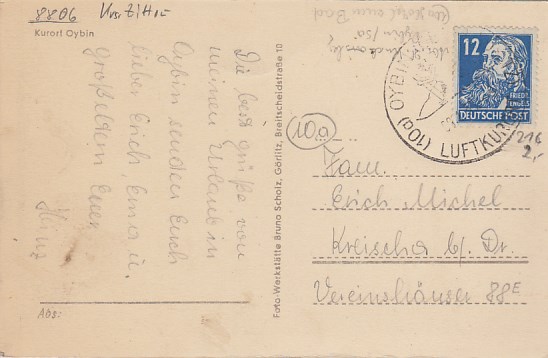 8806 Krs. Zittau
Kurort Oybin
Die best. grüße von
meinen Urlaub in
Oybin senden Euch
liebe Erich, Erna u.
Großeltern Euer
Heinz
Abs:
Foto-Werkstätte Bruno Scholz, Görlitz, Breitscheidstraße 10
12
FRIEDR. ENGELS
DEUTSCHE POST
OYBIN
(10a) LUFTKURORT
216
2,-
10a
Fam.
Erich Michel
Kreischa b/ Dr.
Vereinshäuser 88E